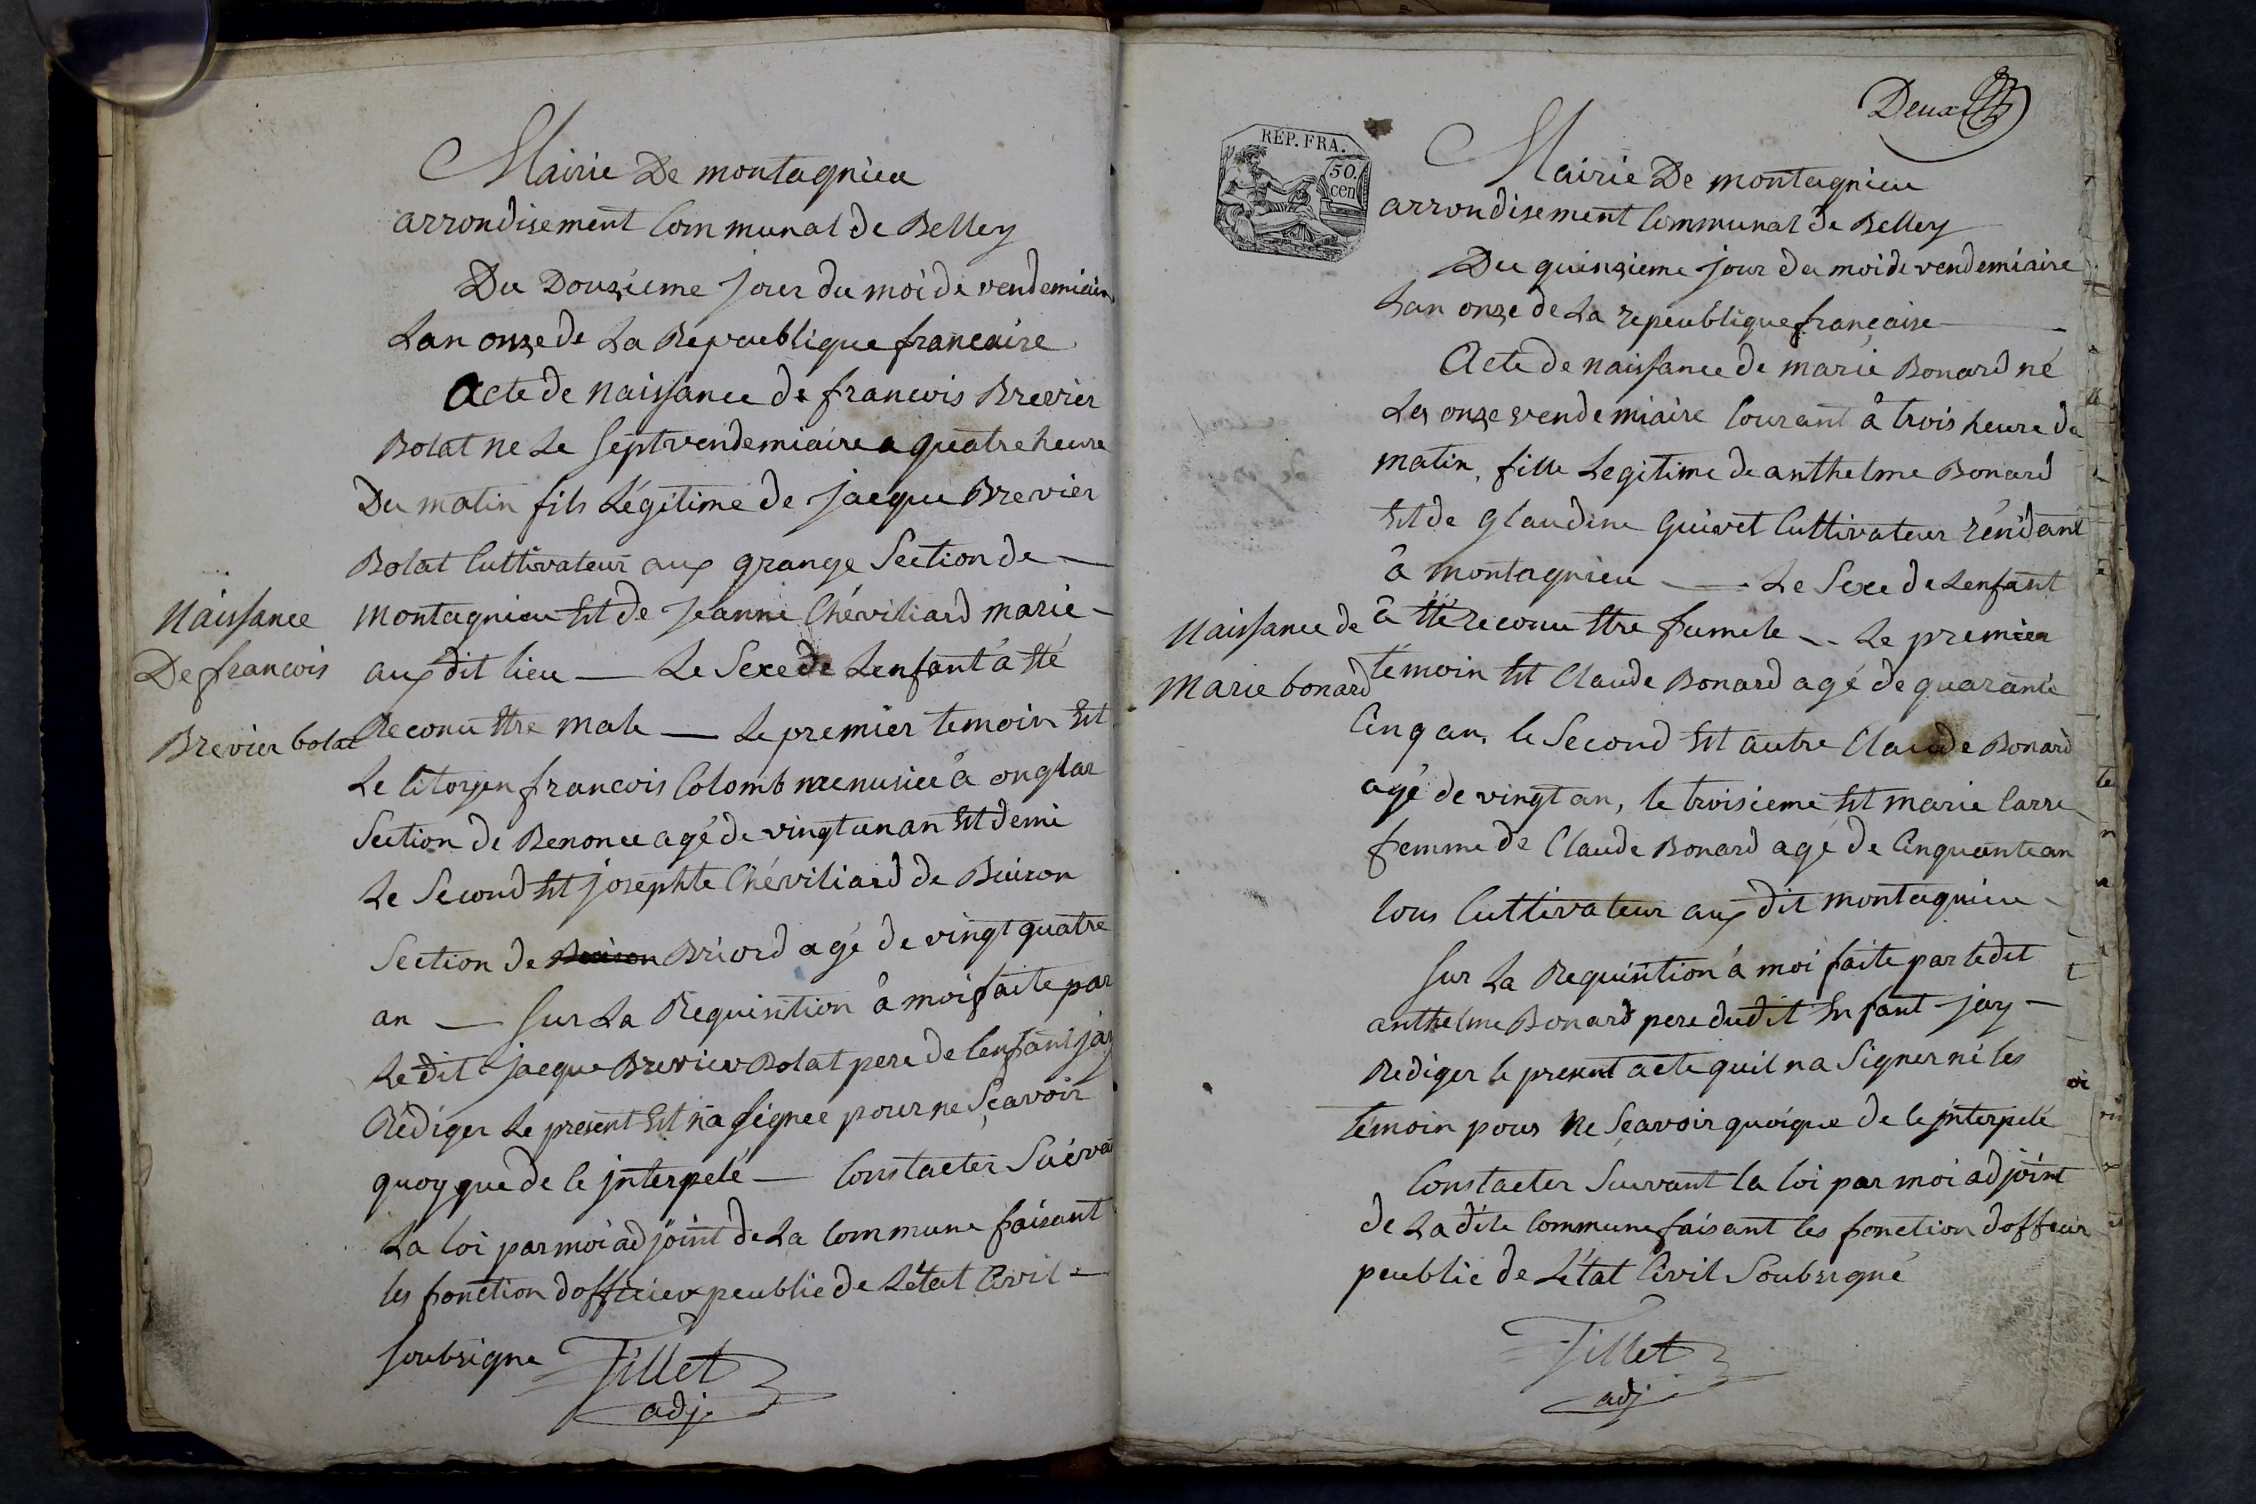 Mairie De montagnieu
arrondisement Communal de Belley
Du Douzieme jour du moi de vendemiaire
Lan onze de La Repeublique francaise
Acte de naissance de francois Brevier
Bolat ne Le sept vendemiaire a quatre heure
Du matin fils Légitime de jacque Brevier
Bolat Cultivateur aux grange Section de —
montagnieu Et de jeanne Chéviliard marié —
aux dit lieu — Le Sexe de Lenfant a Eté
Reconu Etre male — Le premier temoin Est
Le Citoyen francois Colomb menusieé a onglas
Section de Benonce agé de vingt un an Et demi
Le Second Est josephte Chéviliard de Buiron
Section de Buiron Briord agé de vingt quatre
an — sur La Requisition a moi faite par
Le dit jacque Brevier Bolat pere de lenfant jay
Rédiger Le present Et na signee pour ne Sçavoir
quoy que de ce jnterpelé — Constacter Suiva
La loi par moi adjoint de La Commune faisant
les fonction dofficier peublic de Létat Civil —
soubsigne Tillet
adj.
Naissance
De francois
Brevier bolat
Deux
REP. FRA.
50.
cen
Mairie De montagnieu
arrondisement Communal de Belley
Du quinzieme jour du moi de vendemiaire
Lan onze de La repeublique française —
Acte de naissance de marie Bonard né
Les onze vendemiaire Courant a trois heure du
matin, fille Legitime de anthelme Bonard
Et de glaudine Guivet Cultivateur résidant
a montagnieu — Le Sexe de Lenfant
a Eté reconu Etre fumele — Le premier
témoin Est Claude Bonard agé de quarante
Cinq an, le Second Est autre Claude Bonard
agé de vingt an, le troisieme Est marie Carre
femme de Claude Bonard agé de Cinquante an
tous Cultivateur aux dit montagnieu —
sur La Requisition a moi faite par ledit
anthelme Bonard pere dudit Enfant jay —
Rediger le present acte quil na Signer ni les
temoin pour Ne Sçavoir quoique de ce jnterpelé
Constacter Suivant la loi par moi adjoint
de La dite Commune faisant les fonction dofficier
peublic de Létat Civil Soubsigné
Tillet
adj
Naissance de
Marie bonard